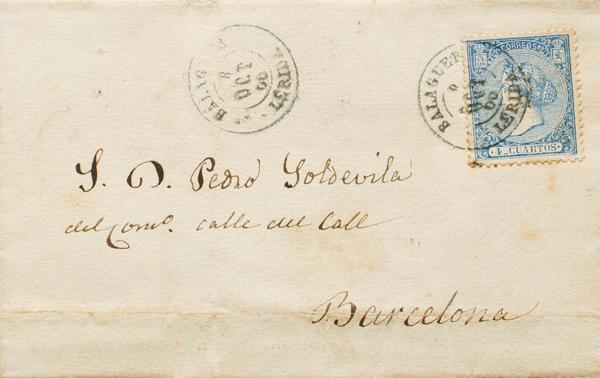 BALAGUER
8
OCT
66
LERIDA
BALAGUER
OCT
66
LERIDA
CORREOS
4 CUARTOS
S. D. Pedro Soldevila
del Com.º calle del Call
Barcelona